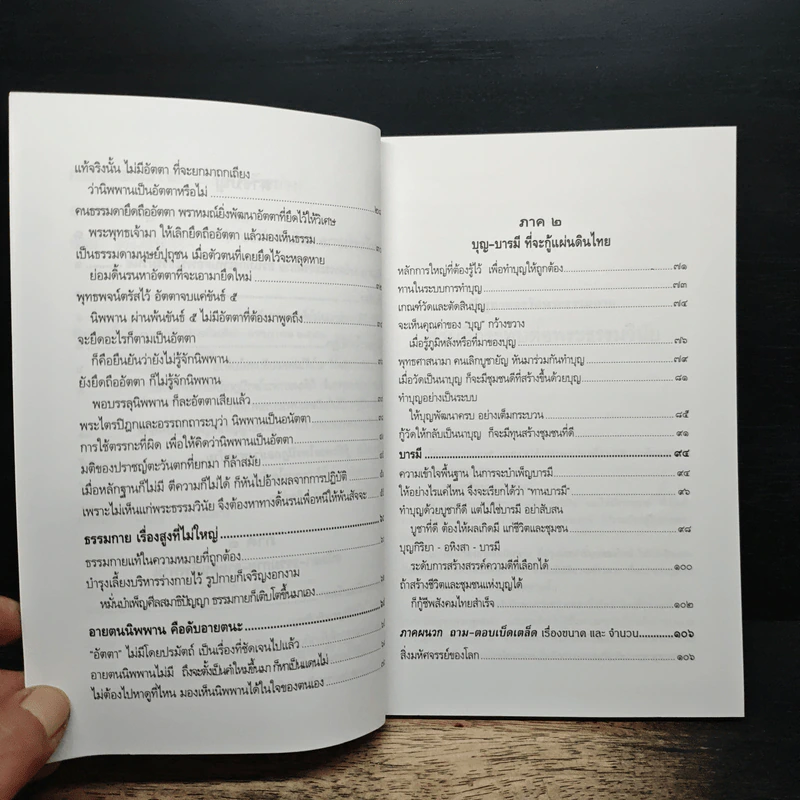 แท้จริงนั้น ไม่มีอัตตา ที่จะยกมาถกเถียง
ว่านิพพานเป็นอัตตาหรือไม่
คนธรรมดายึดถืออัตตา พราหมณ์ยิ่งพัฒนาอัตตาที่ยึดไว้ให้วิเศษ
พระพุทธเจ้ามา ให้เลิกยึดถืออัตตา แล้วมองเห็นธรรม
เป็นธรรมดามนุษย์ปุถุชน เมื่อตัวตนที่เคยยึดไว้จะหลุดหาย
ย่อมดิ้นรนหาอัตตาที่จะเอามายึดใหม่
พุทธพจน์ตรัสไว้ อัตตาจบแค่ขันธ์ ๕
นิพพาน ผ่านพ้นขันธ์ ๕ ไม่มีอัตตาที่ต้องมาพูดถึง
จะยึดอะไรก็ตามเป็นอัตตา
ก็คือยืนยันว่ายังไม่รู้จักนิพพาน
ยังยึดถืออัตตา ก็ไม่รู้จักนิพพาน
พอบรรลุนิพพาน ก็ละอัตตาเสียแล้ว
พระไตรปิฎกและอรรถกถาระบุว่า นิพพานเป็นอนัตตา
การใช้ตรรกะที่ผิด เพื่อให้คิดว่านิพพานเป็นอัตตา
มติของปราชญ์ตะวันตกที่ยกมา ก็ล้าสมัย
เมื่อหลักฐานก็ไม่มี ตีความก็ไม่ได้ ก็หันไปอ้างผลจากการปฏิบัติ
เพราะไม่เห็นแก่พระธรรมวินัย จึงต้องหาทางดิ้นรนเพื่อหนีให้พ้นสัจจะ
ธรรมกาย เรื่องสูงที่ไม่ใหญ่
ธรรมกายแท้ในความหมายที่ถูกต้อง
บำรุงเลี้ยงบริหารร่างกายไว้ รูปกายก็เจริญงอกงาม
หมั่นบำเพ็ญศีลสมาธิปัญญา ธรรมกายก็เติบโตขึ้นมาเอง
อายตนนิพพาน คือดับอายตนะ
"อัตตา" ไม่มีโดยปรมัตถ์ เป็นเรื่องที่ชัดเจนไปแล้ว
อายตนนิพพานไม่มี ถึงจะตั้งเป็นคำใหม่ขึ้นมา ก็หาเป็นแดนไม่
ไม่ต้องไปหาดูที่ไหน มองเห็นนิพพานได้ในใจของตนเอง
ภาค ๒
บุญ-บารมี ที่จะกู้แผ่นดินไทย
หลักการใหญ่ที่ต้องรู้ไว้ เพื่อทำบุญให้ถูกต้อง ๗๑
ทานในระบบการทำบุญ ๗๓
เกณฑ์วัดและตัดสินบุญ ๗๔
จะเห็นคุณค่าของ "บุญ" กว้างขวาง
เมื่อรู้ภูมิหลังหรือที่มาของบุญ ๗๖
พุทธศาสนามา คนเลิกบูชายัญ หันมาร่วมกันทำบุญ ๗๙
เมื่อวัดเป็นนาบุญ ก็จะมีชุมชนดีที่สร้างขึ้นด้วยบุญ ๘๑
ทำบุญอย่างเป็นระบบ
ให้บุญพัฒนาครบ อย่างเต็มกระบวน ๘๕
กู้วัดให้กลับเป็นนาบุญ ก็จะมีทุนสร้างชุมชนที่ดี ๙๑
บารมี ๙๔
ความเข้าใจพื้นฐาน ในการจะบำเพ็ญบารมี ๙๔
ให้อย่างไรแค่ไหน จึงจะเรียกได้ว่า "ทานบารมี" ๙๖
ทำบุญด้วยบูชาก็ดี แต่ไม่ใช่บารมี อย่าสับสน
บูชาที่ดี ต้องให้ผลเกิดมี แก่ชีวิตและชุมชน ๙๘
บุญกิริยา - อหิงสา - บารมี
ระดับการสร้างสรรค์ความดีที่เลือกได้ ๑๐๐
ถ้าสร้างชีวิตและชุมชนแห่งบุญได้
ก็กู้ชีพสังคมไทยสำเร็จ ๑๐๒
ภาคผนวก ถาม-ตอบเบ็ดเตล็ด เรื่องขนาด และ จำนวน ๑๐๖
สิ่งมหัศจรรย์ของโลก ๑๐๖